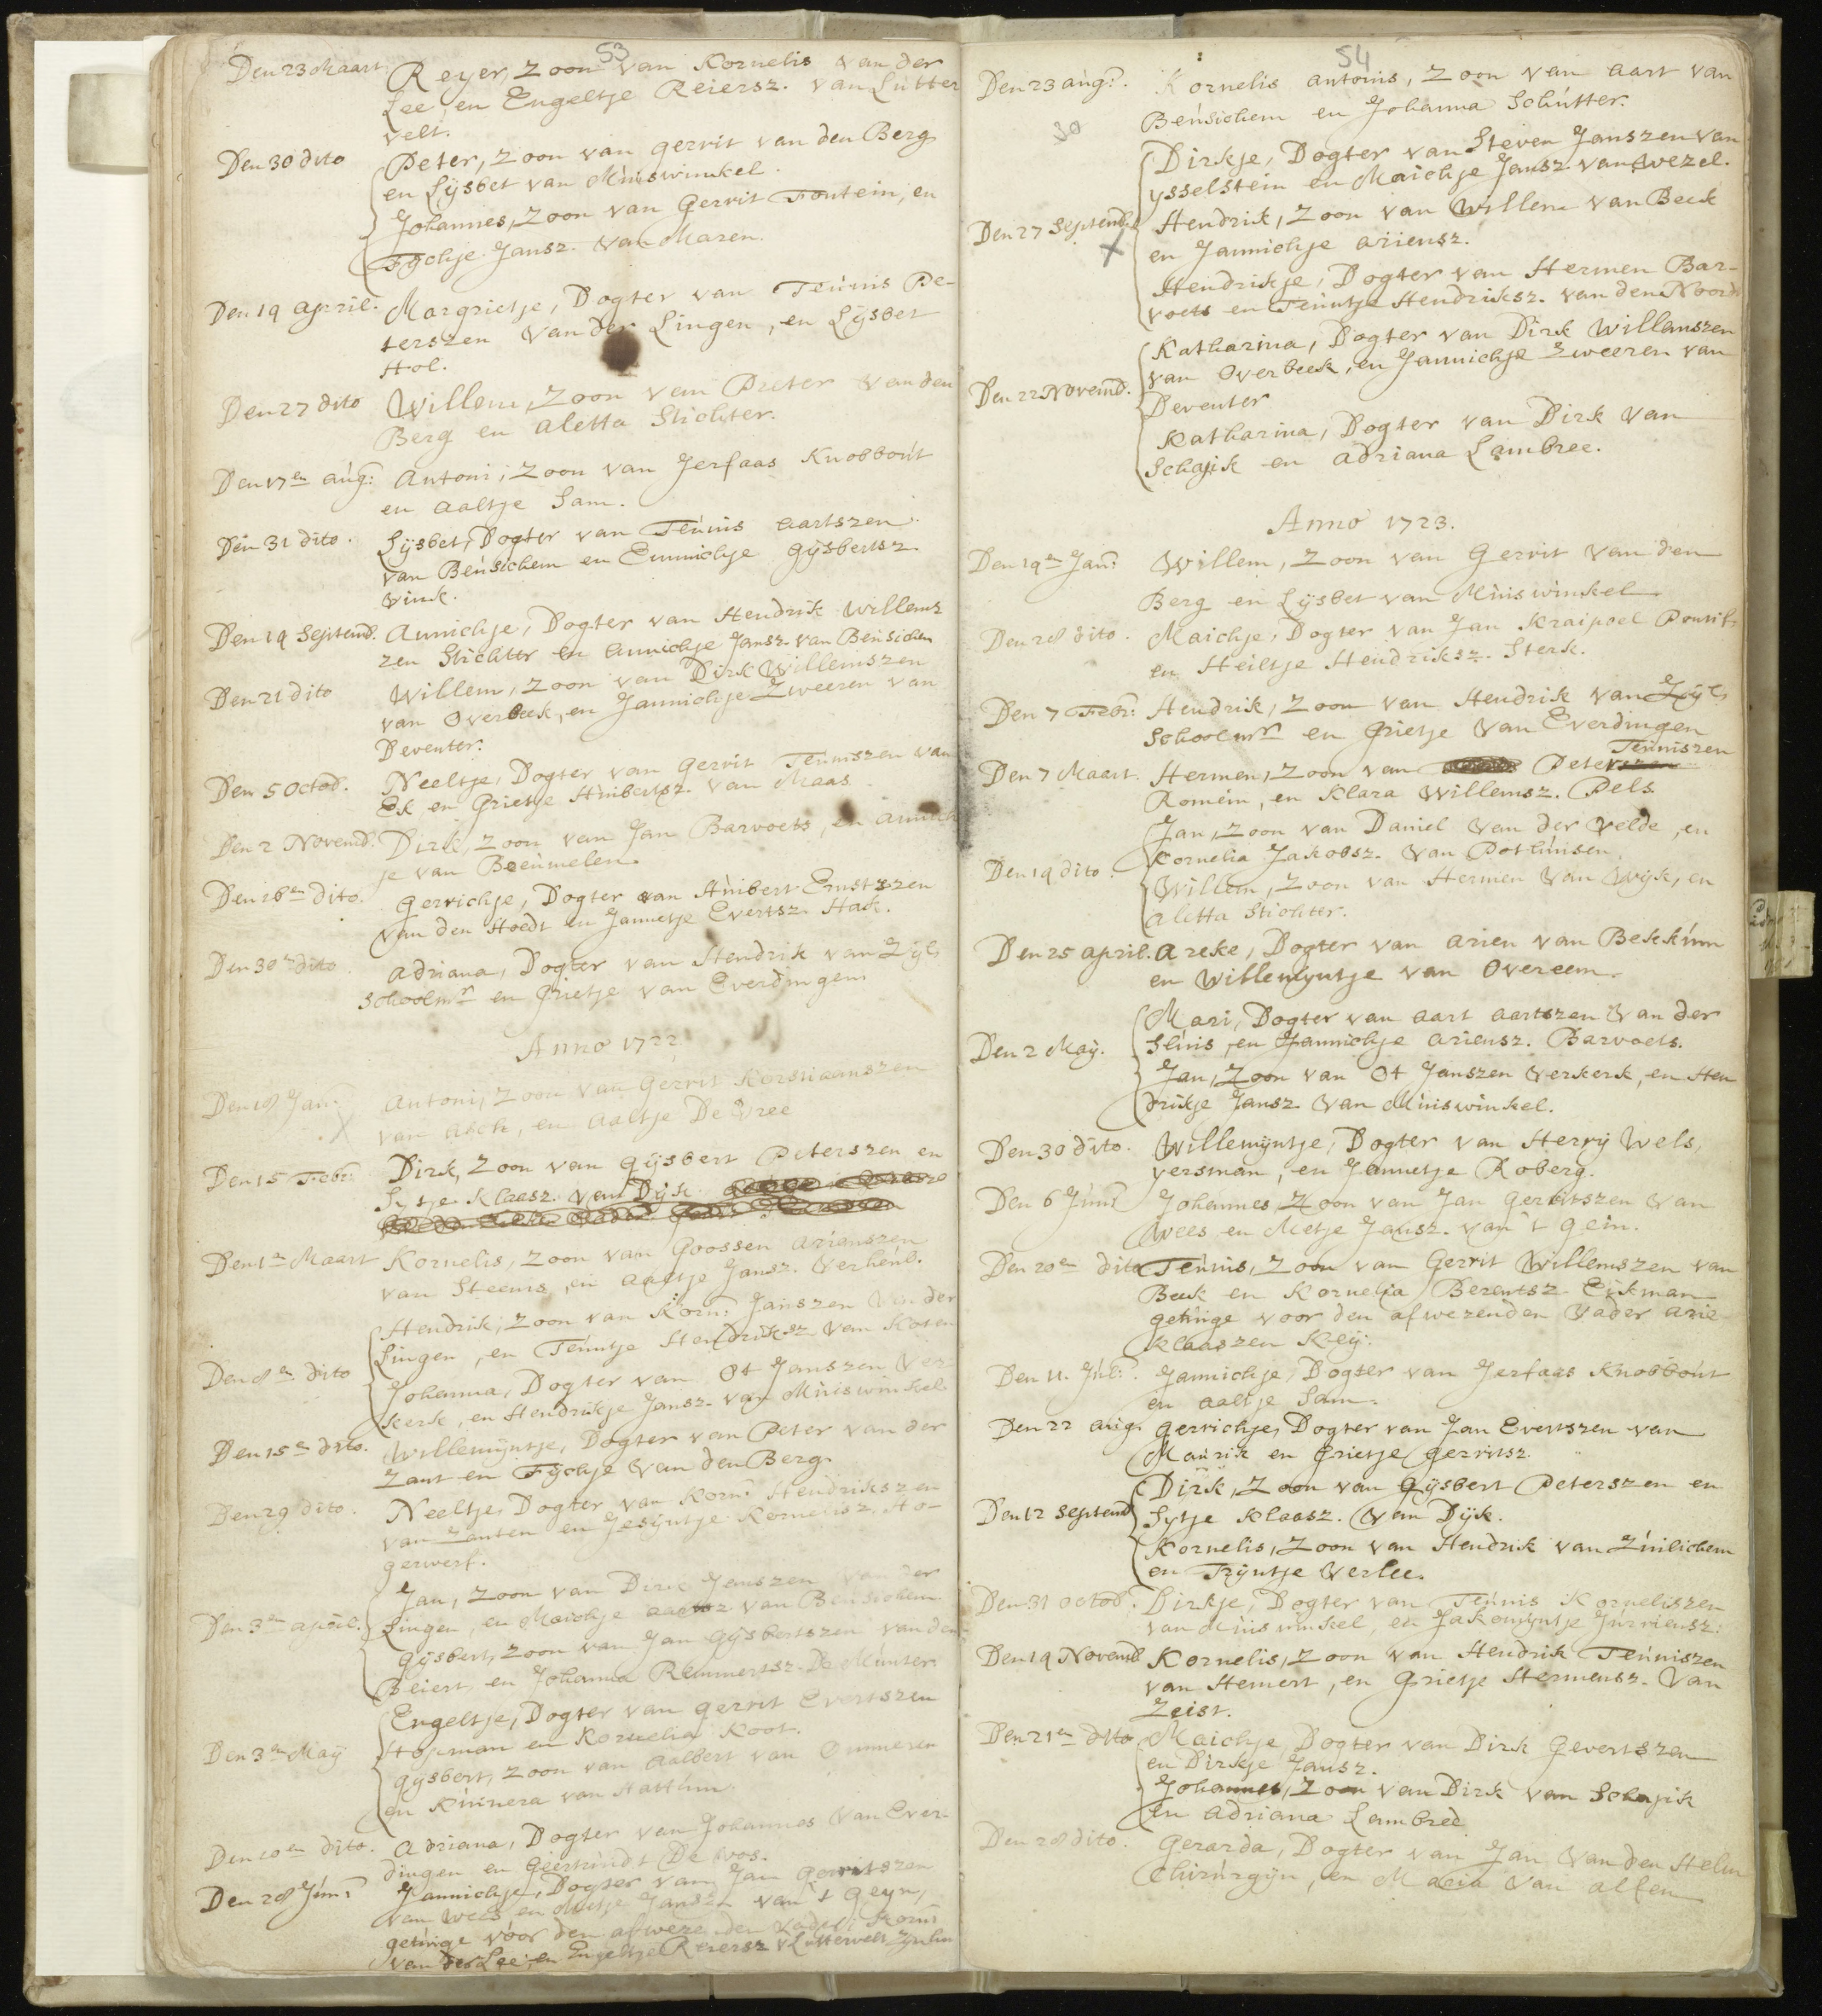 53
Den 23 Maart. Reyer, Zoon van Kornelis van der
Lee, en Engeltje Reiersz. van Lutter
velt.
Den 30 dito Peter, Zoon van gerrit van den Berg
en Lysbet van Muiswinkel.
Johannes, Zoon van Gerrit Fontein, en
Fychje Jansz. van Maren.
Den 19 april. Margrietje, Dogter van Teunis Pe-
terszen van der Lingen, en Lysbet
Hol.
Den 27 dito Willem, Zoon van Pieter van den
Berg en aletta Stichter.
Den 17en aug: Antoni, Zoon van Jerfaas Knobbout
en aaltje Sam.
Den 31 dito. Lysbet, Dogter van Teunis aartszen
van Beusichem en Eunichje gysbertsz
Vink.
Den 19 Septemb. Annichje, Dogter van Hendrik Willems
zen Stichter en annichje Jansz. van Beusichem
Den 21 dito Willem, Zoon van Dirk Willemszen
van Overbeek, en Jannichje Zweeren van
Deventer.
Den 5 Octob. Neeltje, Dogter van gerrit Teuniszen van
Ek en Grietje Huibertsz. van Maas.
Den 2 Novemb. Dirk, Zoon van Jan Barvoets, en annich
je van Beeumelen.
Den 16en dito. gerrichje, Dogter van Huibert Ernstszen
van den Hoedt en Jannetje Evertsz. Hack.
Den 30en dito. adriana, Dogter van Hendrik van Zyl,
Schoolmr en Grietje van Everdingen.
Anno 1722.
Den 18 Jan: Antoni, Zoon van Gerrit Korstiaanszen
van asch, en aaltje De Vree
Den 15 Febr: Dirk, Zoon van gysbert Peterszen en
Sytje Klaasz. van Dyk.
Den 1en Maart Kornelis, Zoon van Goossen arienszen
van Steenis, en aaltje Jansz. Verheul.
Hendrik, Zoon van Korn: Janszen van der
Lingen, en Teuntje Hendriksz van Koten
Den 8en dito Johanna, Dogter van Ot Janszen Ver
kerk, en Hendrikje Jansz. van Muiswinkel
Den 15en dito. Willemyntje, Dogter van Peter van der
Zant en Fychje van den Berg.
Den 29 dito. Neeltje, Dogter van Korn: Hendrikszen
van Zanten en Jesyntje Kornelisz. Ho-
gerwerf.
Jan, Zoon van Dirk Janszen van der
Den 3en april. Lingen, en Maichje aartsz van Beusichem
gysbert, Zoon van Jan Gysbertszen van den
Beiert, en Johanna Remmertsz. De Munter.
Engeltje, Dogter van gerrit Evertszen
Den 3en May Hopman en Kornelia Koot.
gysbert, Zoon van aalbert van Ommeren
en Kuinera van Hattem.
Den 10en dito. adriana, Dogter van Johannes van Ever-
dingen en Geertruidt De Vos.
Den 28 Jun: Jannichje, Dogter van Jan Gerritszen
van Wees en Metje Jansz. van 't Geyn,
getuige voor den afwezenden vader Korn:
van der Lee, en Engeltje Reiersz v Luttervelt
54
Den 23 aug:. Kornelis antonis, Zoon van aart van
Beusichem en Johanna Schutter.
Dirkje, Dogter van Steven Janszen van
ysselstein en Maichje Jansz. van Wezel.
Den 27 Septemb. Hendrik, Zoon van Willem van Beek
en Jannichje ariensz.
Hendrikje, Dogter van Hermen Bar-
voets en Teuntje Hendriksz. van den Noord
Katharina, Dogter van Dirk Willemszen
van Overbeek, en Jannichje Zweeren van
Den 22 Novemb. Deventer
Katharina, Dogter van Dirk van
Schajik en adriana Lambree.
Anno 1723.
Den 19en Jan: Willem, Zoon van Gerrit van den
Berg en Lysbet van Muiswinkel
Den 28 dito. Maichje, Dogter van Jan Kraipoel
en Heiltje Hendriksz. Sterk.
Den 7 Febr: Hendrik, Zoon van Hendrik van Zyl,
Schoolmr en Grietje van Everdingen
Teuniszen
Den 7 Maart. Hermen, Zoon van Peterszen
Romein, en Klara Willemsz. Pels.
Jan, Zoon van Daniel van der Velde, en
Den 19 dito. Kornelia Jakobsz. van Pothuisen.
Willem, Zoon van Hermen van Wyk, en
aletta Stichter.
Den 25 april. Areke, Dogter van arien van Bekkum
en Willemyntje van Overeem.
Mari, Dogter van aart aartszen van der
Den 2 May. Sluis, en Jannichje ariensz. Barvoets.
Jan, Zoon van Ot Janszen Verkerk, en Hen
drikje Jansz. van Muiswinkel.
Den 30 dito. Willemyntje, Dogter van Herry Wels,
versman, en Jannetje Roberg.
Den 6 Juni Johannes, Zoon van Jan Gerritszen van
Wees en Metje Jansz. van 't gein.
Den 20en dito Teunis, Zoon van Gerrit Willemszen van
Beek en Kornelia Berentsz Eikman
getuige voor den afwezenden Vader arie
Klaaszen Key.
Den 11. Jul:. Jannichje, Dogter van Jerfaas Knobbout
en aaltje Sam.
Den 22 aug. gerrichje, Dogter van Jan Evertszen van
Maurik en Grietje gerritsz.
Dirk, Zoon van Gysbert Peterszen en
Den 12 Septemb Sytje Klaasz. van Dyk.
Kornelis, Zoon van Hendrik van Zuilichem
en Tryntje Verlee.
Den 31 octob:. Dirkje, Dogter van Teunis Korneliszen
van Muiswinkel, en Jakomyntje Jurriensz:
Den 19 Novemb Kornelis, Zoon van Hendrik Teuniszen
van Hemert, en Grietje Hermensz. van
Zeist.
Den 21en dito. Maichje, Dogter van Dirk Gevertszen
en Dirkje Jansz.
Johannes, Zoon van Dirk van Schajik
en adriana Lambree
Den 28 dito. Gerarda, Dogter van Jan van den Helm
Chirurgyn, en Maria van alfen